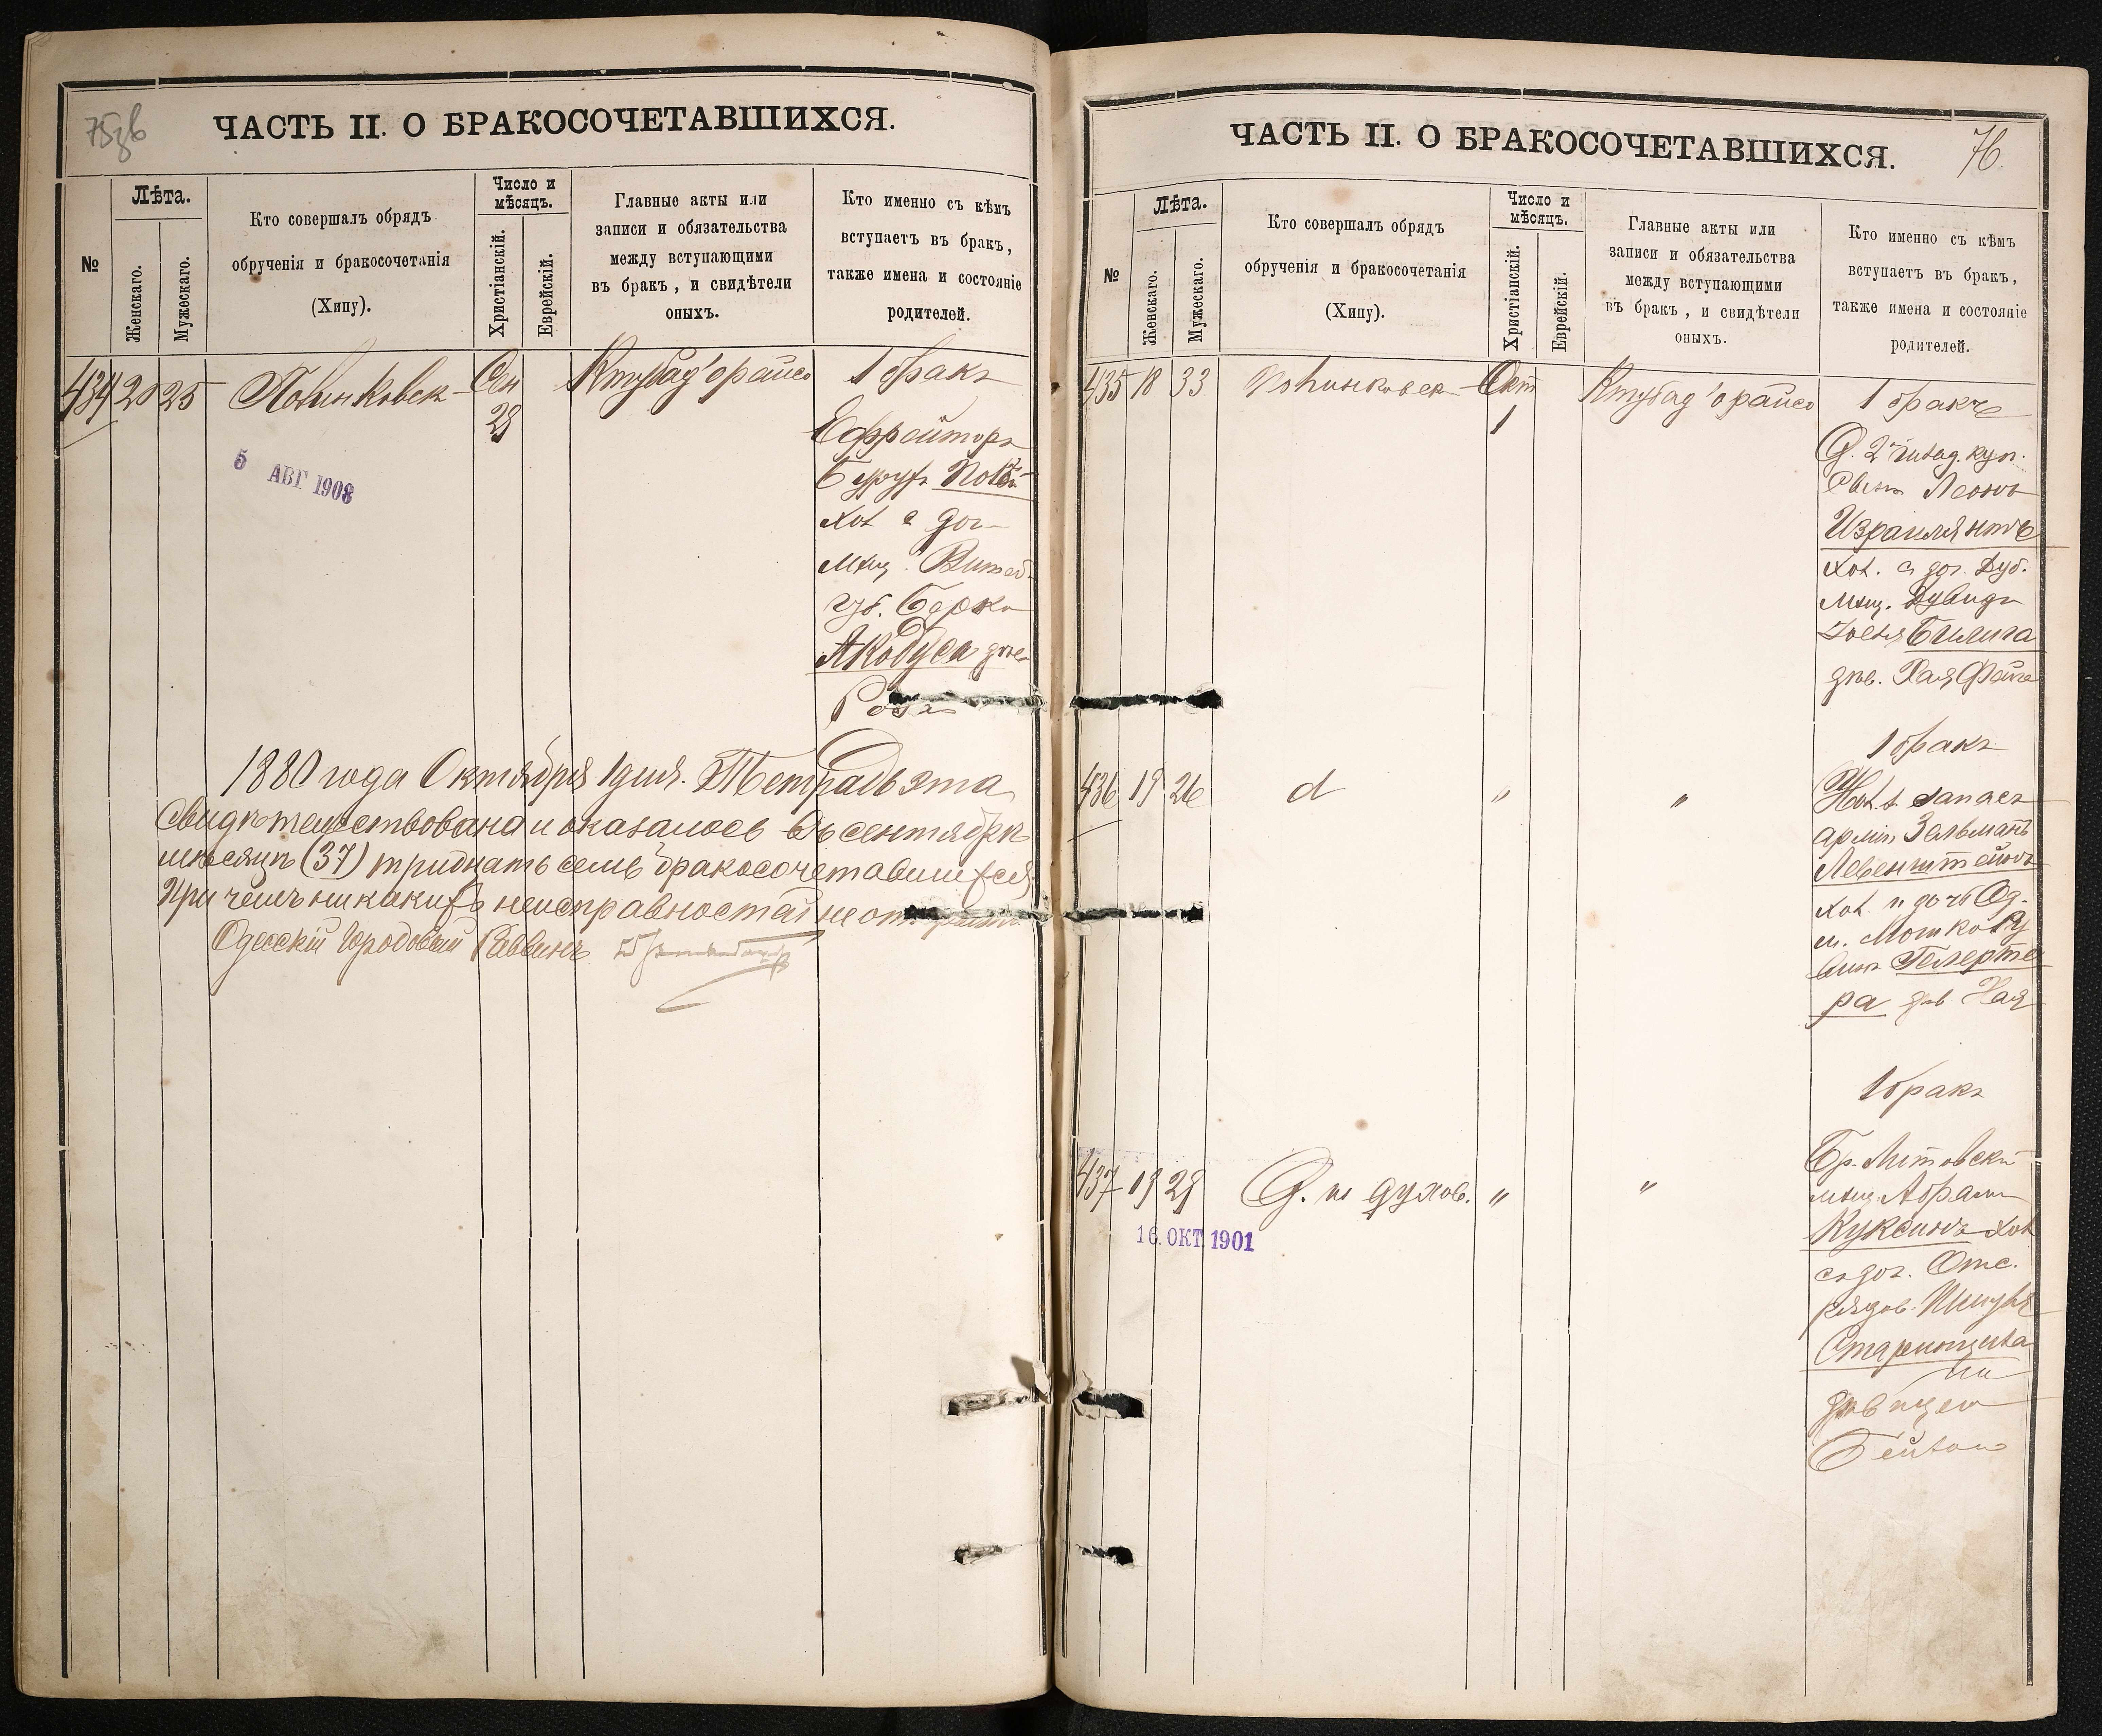 75зв
ЧАСТЬ II. О БРАКОСОЧЕТАВШИХСЯ.
№
Лѣта.
Женскаго.
Мужескаго.
Кто совершалъ обрядъ
обрученія и бракосочетанія
(Хипу).
Число и
мѣсяцъ.
Христіанскій.
Еврейскій.
Главные акты или
записи и обязательства
между вступающими
въ бракъ, и свидѣтели
оныхъ.
Кто именно съ кѣмъ
вступаетъ въ бракъ,
также имена и состояніе
родителей.
434 20 25
Сен
28
1 бракъ
Ефрейторъ
хол с доч
мѣщ. Витеб.
губ. Берка
Якобуса
Роза
5 АВГ 1908
1880 года Октября 1 дня. Тетрадь эта
свидѣтельствована и оказалось въ сентябрѣ
мѣсяцѣ (37) тридцать семь бракосочетавшихся
при чемъ никакихъ неисправностей не
Одесскій Городовый Раввинъ
76.
ЧАСТЬ II. О БРАКОСОЧЕТАВШИХСЯ.
№
Лѣта.
Женскаго.
Мужескаго.
Кто совершалъ обрядъ
обрученія и бракосочетанія
(Хипу).
Число и
мѣсяцъ.
Христіанскій.
Еврейскій.
Главные акты или
записи и обязательства
между вступающими
въ бракъ, и свидѣтели
оныхъ.
Кто именно съ кѣмъ
вступаетъ въ бракъ,
также имена и состояніе
родителей.
435 18 33
Окт
1
1 бракъ
О. 2й гильд. куп.
сынъ Леонъ
Израилянтъ
хол. съ доч. Дуб.
мѣщ. Дувида
Билига
дѣв. Хая Фейга
436 19 26 d " "
1 бракъ
запас
арміи Зельманъ
Левенштейнъ
хол. и дочь Од.
м. Мошко Ру
вина Гелерте
ра дѣв. Хая
437 19 29 О. по духов. " "
16. ОКТ. 1901
1 бракъ
Бр. Литовскій
мѣщ. Абрамъ
Куксинъ хол
съ доч. Отс.
рядов.
дѣвицею
Бейлою